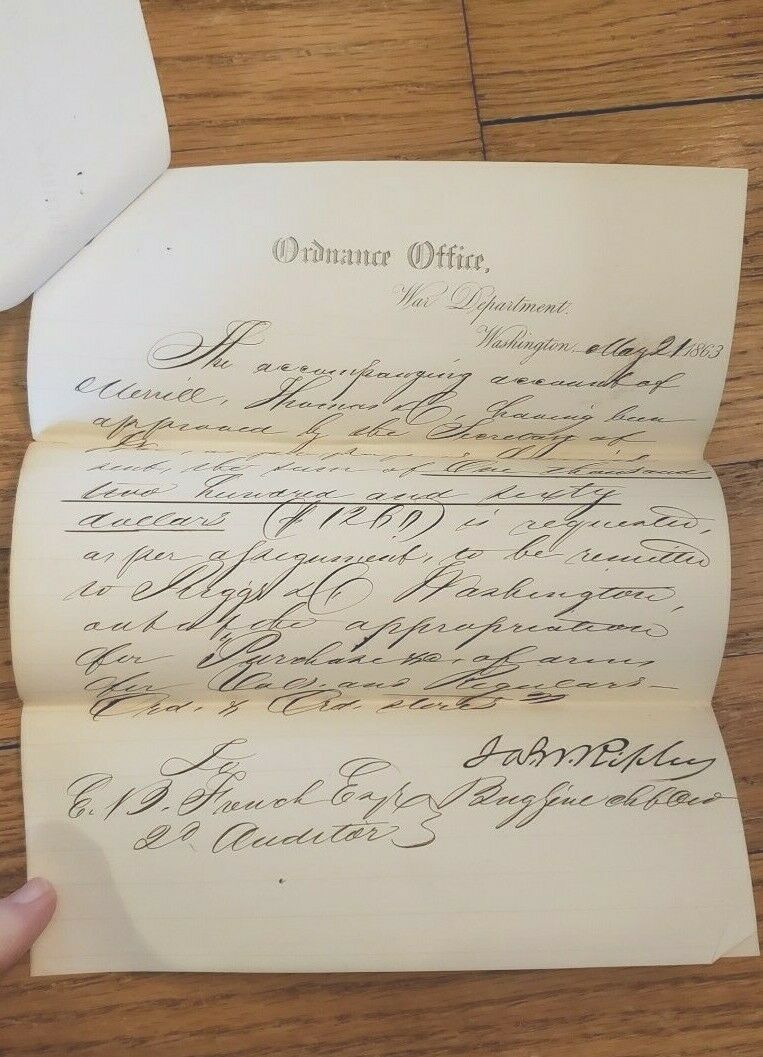 Ordnance Office,
War Department.
Washington, May 21 1863
The accompanying account of
Merrill, Thomas & Co, having been
approved by the Secretary of
the sum of One thousand
two hundred and sixty
dollars ($1260) is requested,
as per assignment, to be remitted
to Riggs & Co Washington,
out of the appropriation
for "Purchase &c, of arms
for Vols. and Regulars—
Ord. & Ord. stores"
To
Jas. W. Ripley
E. B. French Esqr Brig Gene Ch of Ord
2d Auditor